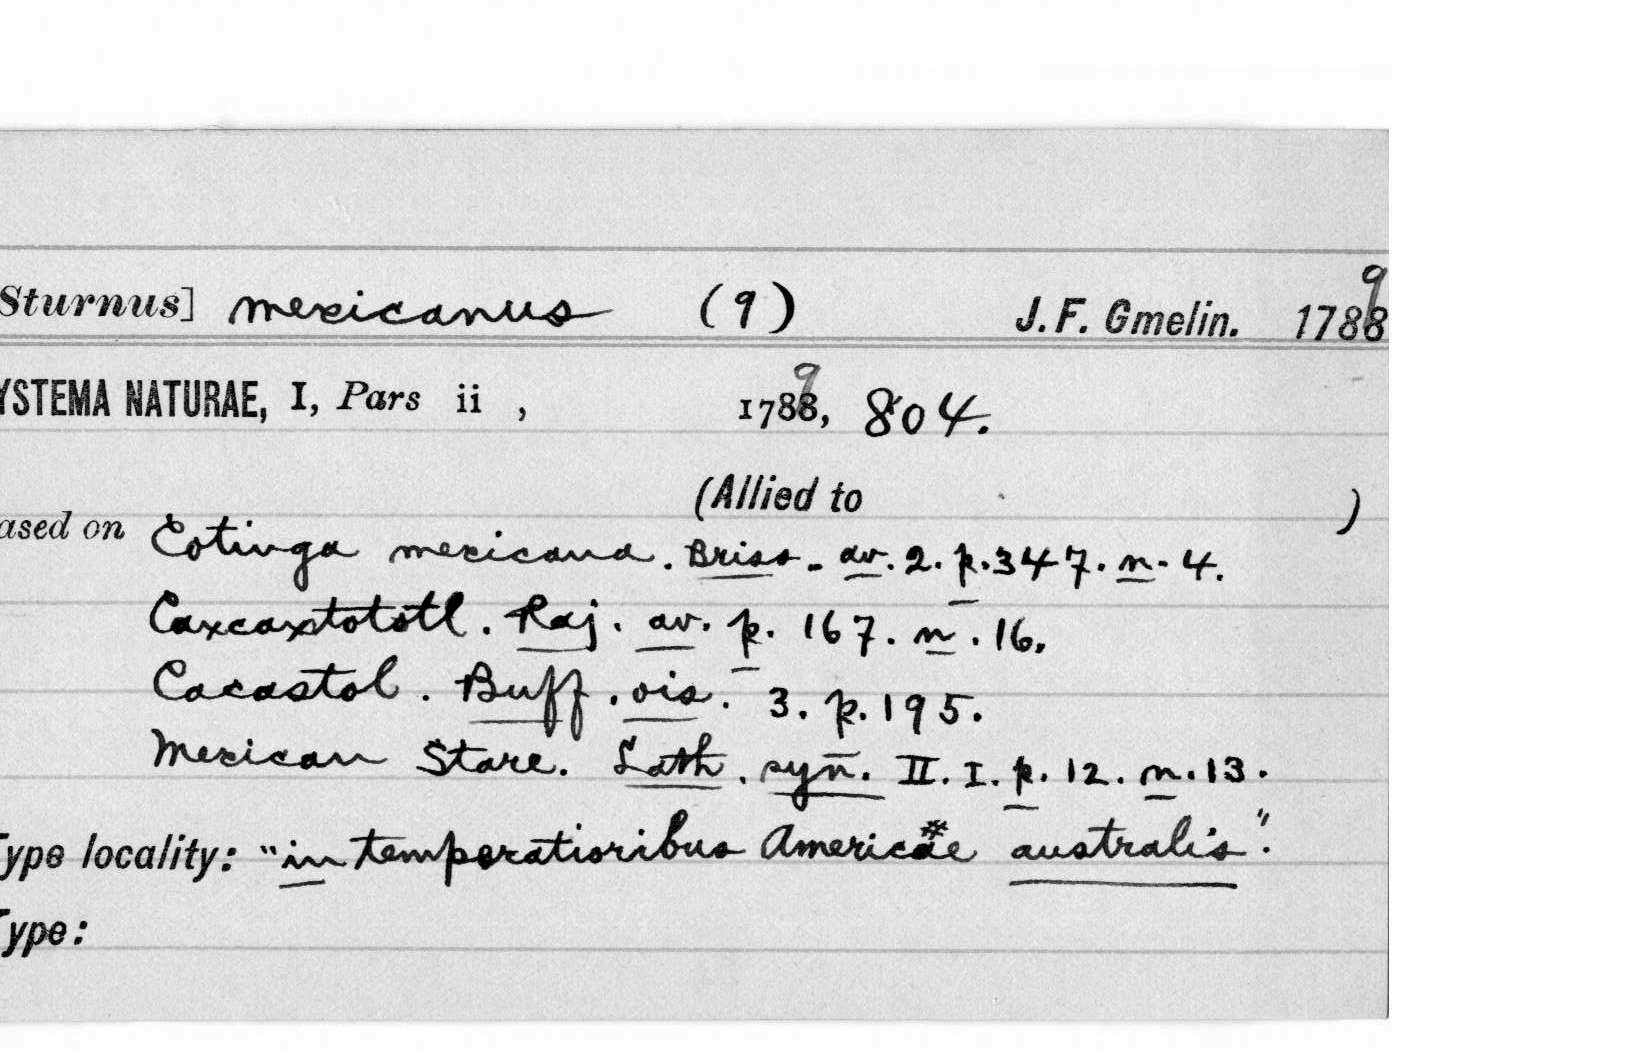 Sturnus] mexicanus (9) J. F. Gmelin. 1789
YSTEMA NATURAE, I, Pars ii , 1789, 804.
(Allied to )
ased on Cotinga mexicana. Briss. av. 2. p. 347. n. 4.
Caxcaxtototl. Raj. av. p. 167. n. 16.
Cacastol. Buff. ois. 3. p. 195.
Mexican Stare. Lath. syn. II. I. p. 12. n. 13.
Type locality: "in temperatioribus Americae # australis".
Type: